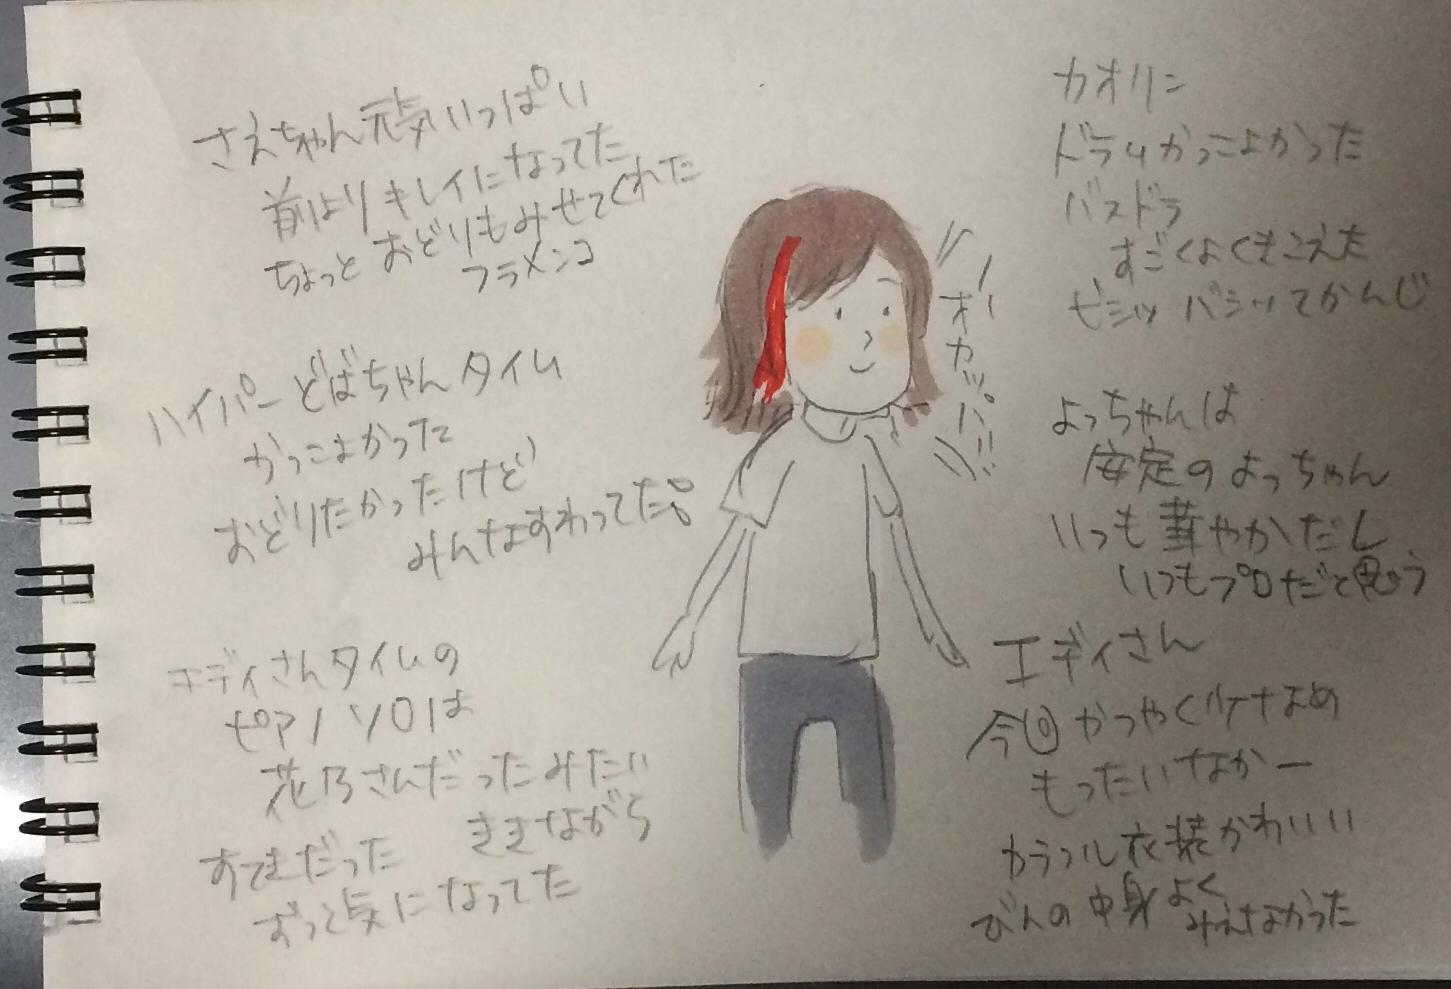 さえちゃん元気いっぱい
前よりキレイになってた
ちょっとおどりもみせてくれた
フラメンコ
ハイパーどばちゃんタイム
かっこよかった
おどりたかったけど
みんなすわってた。
エディさんタイムの
ピアノソロは
花乃さんだったみたい
ききながら
すてきだった
ずっと気になってた
オカッパ!!
カオリン
ドラムかっこよかった
バスドラ
すごくよくきこえた
ビシッバシッてかんじ
よっちゃんは
安定のよっちゃん
いつも華やかだし
いつもプロだと思う
エディさん
今回かつやく少なめ
もったいなかー
カラフル衣装かわいい
びんの中身よく
みえなかった